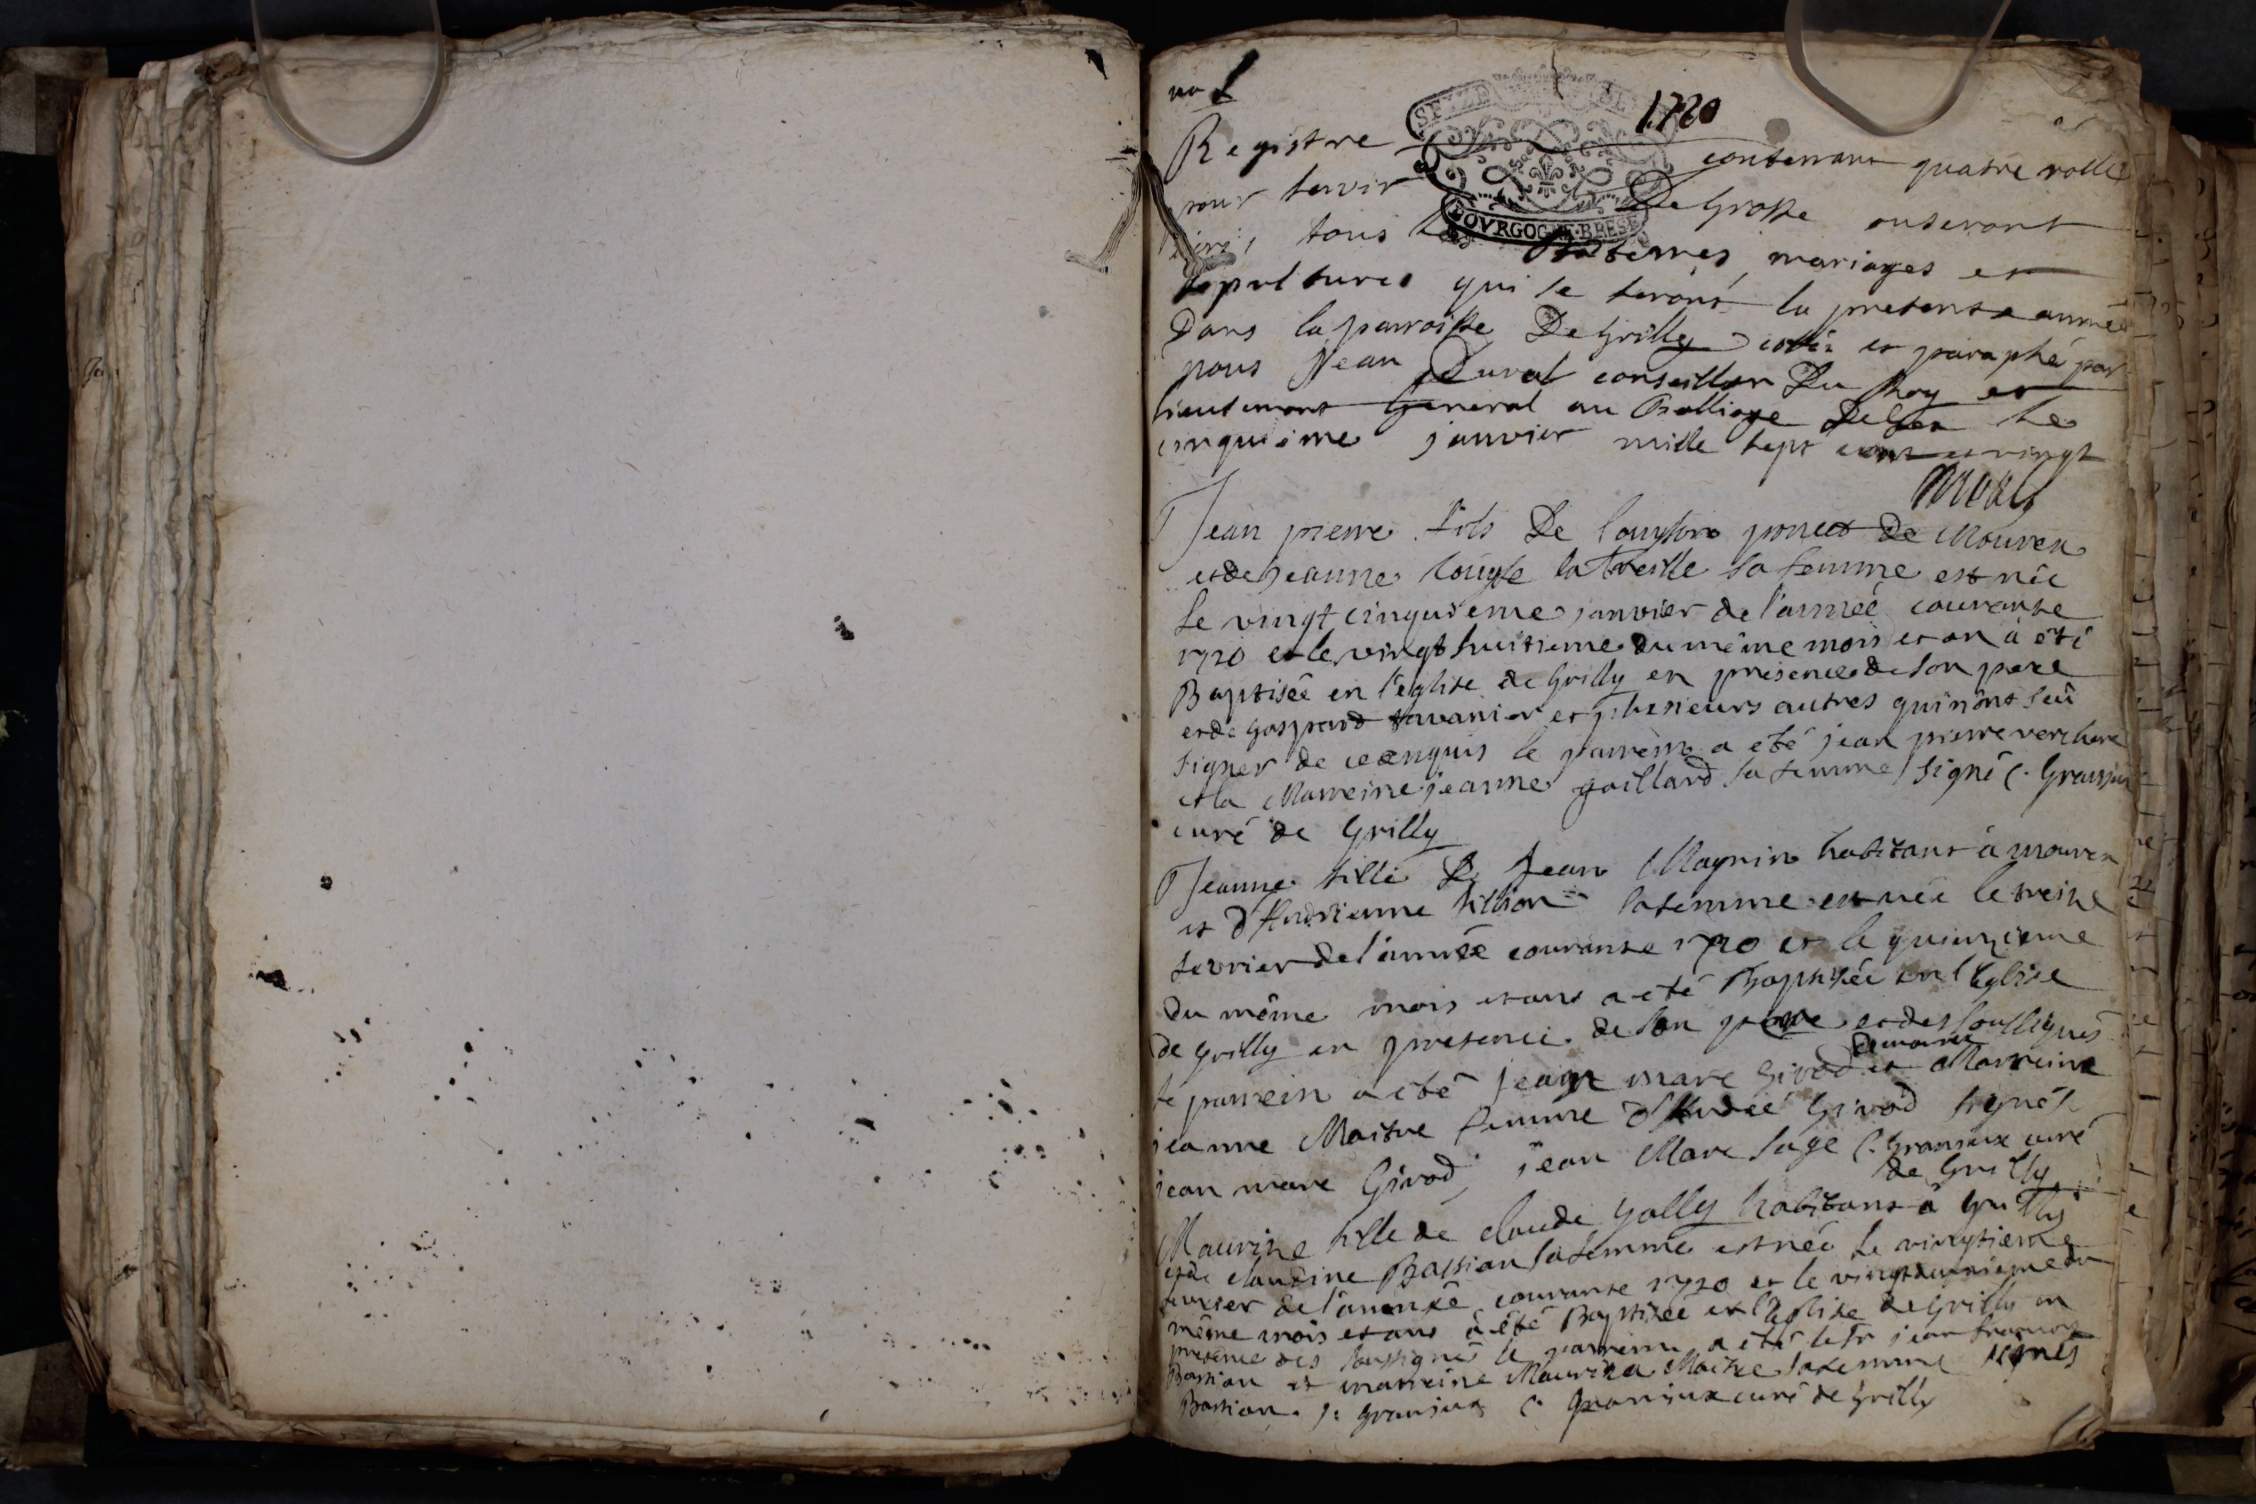 1720
SEIZE
BOVRGOGNE·BRESSE
Registre contenant quatre rolle
pour servir De Grosse ou seront
tous les Batemes mariages et
sepultures qui se feront la presente année
Dans la parroisse De Grilly cotté et paraphé par
nous Jean Duval conseiller Du Roy et
lieutenant General au Balliage De Gex le
cinquieme janvier mille sept cent et vingt
Jean pierre fils De poncet de Mourex
et de jeanne Louyse la treille sa femme est née
Le vingt cinquieme janvier de l'année courante
1720 et le vingt huitieme du même mois et an à été
Baptisée en l'eglise de Grilly en presence de son pere
et de gaspard tavanier et plusieurs autres qui n'ont seu
signer de ce enquis le parrein a eté jean pierre verchere
et la Marreine jeanne gaillard sa femme signé C. Granjux
curé de Grilly
Jeanne fille De Jean Magnin habitant à mourex
et d'Andrienne fillion sa femme est née le treise
fevrier de l'année courante 1720 et le quinzieme
Du même mois et an a eté Baptisée en l'Eglise
de Grilly en presence de son pere et des soussignés
le parrein a eté jean marc Girod et Marreine
jeanne Maitre femme d'André Girod signés
jean marc Girod, jean Marc Sage C. Granjux curé
de Grilly
Maurise fille de claude Golly habitant à Grilly
et de claudine Bassian sa femme est née le vingtieme
fevrier de l'année courante 1720 et le du
même mois et an à été Baptisée en l'Eglise de Grilly en
presence des soussignés le parrein a été le sr jean françois
Bastian et marreine Maurise Maitre sa femme signés
Bastian. J. Granjux C. Granjux curé de Grilly